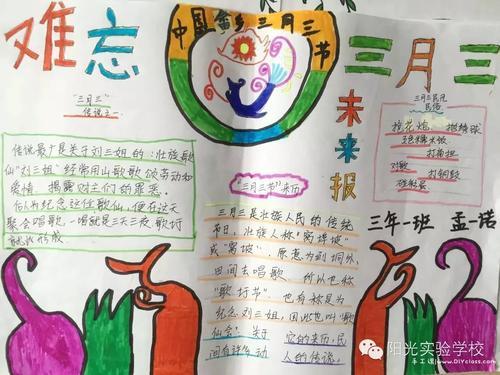 难忘
中国壮乡三月三节
三月三
未来报
"三月三"
传说之一
传说最广是关于刘三姐的:壮族歌
仙"刘三姐"经常用山歌歌颂劳动和
爱情,揭露财主们的罪恶。
后人为纪念这位歌仙,便在这天
聚会唱歌,一唱就是三天三夜,歌圩
就此形成
"三月三节"来历
三月三是壮族人民的传统
节日,壮族人称"窝埠坡"
或"窝坡",原意为到垌外、
田间去唱歌,所以也称
"歌圩节"。也有称是为
纪念刘三姐,因此也叫"歌
仙会"。关于
它的来历,民
间有许多动
人的传说。
三月三民风
民俗
抢花炮、抛绣球
五色糯米饭
打扁担
对歌
打铜鼓
碰彩蛋
三年一班 孟一诺
阳光实验学校
手工课www.DIYclass.com